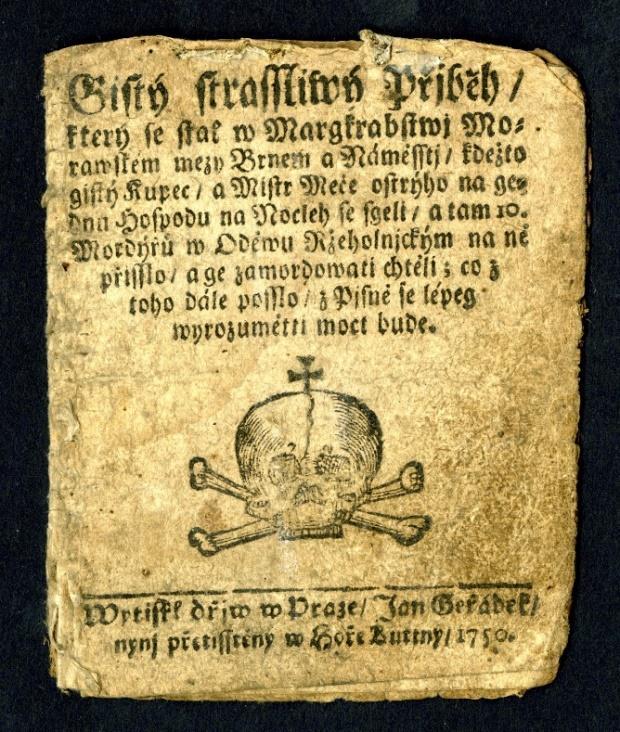 Gistý strasslitwý Přjběh /
který se stal w Margkrabstwj Mo-
rawskem mezy Brnem a Náměsstj / kdežto
gistý Kupec / a Mistr Meče ostrýho na ge-
dnu Hospodu na Nocleh se sgeli / a tam 10.
Mordýřů w Oděwu Ržeholnjckým na ně
přisslo / a ge zamordowati chtěli ; co z
toho dále posslo / z Pisně se lépeg
wyrozuměti moct bude.
Wytiskl dřjw w Praze / Jan Geřábek /
nynj přetisstěny w Hoře Kuttny / 1750.